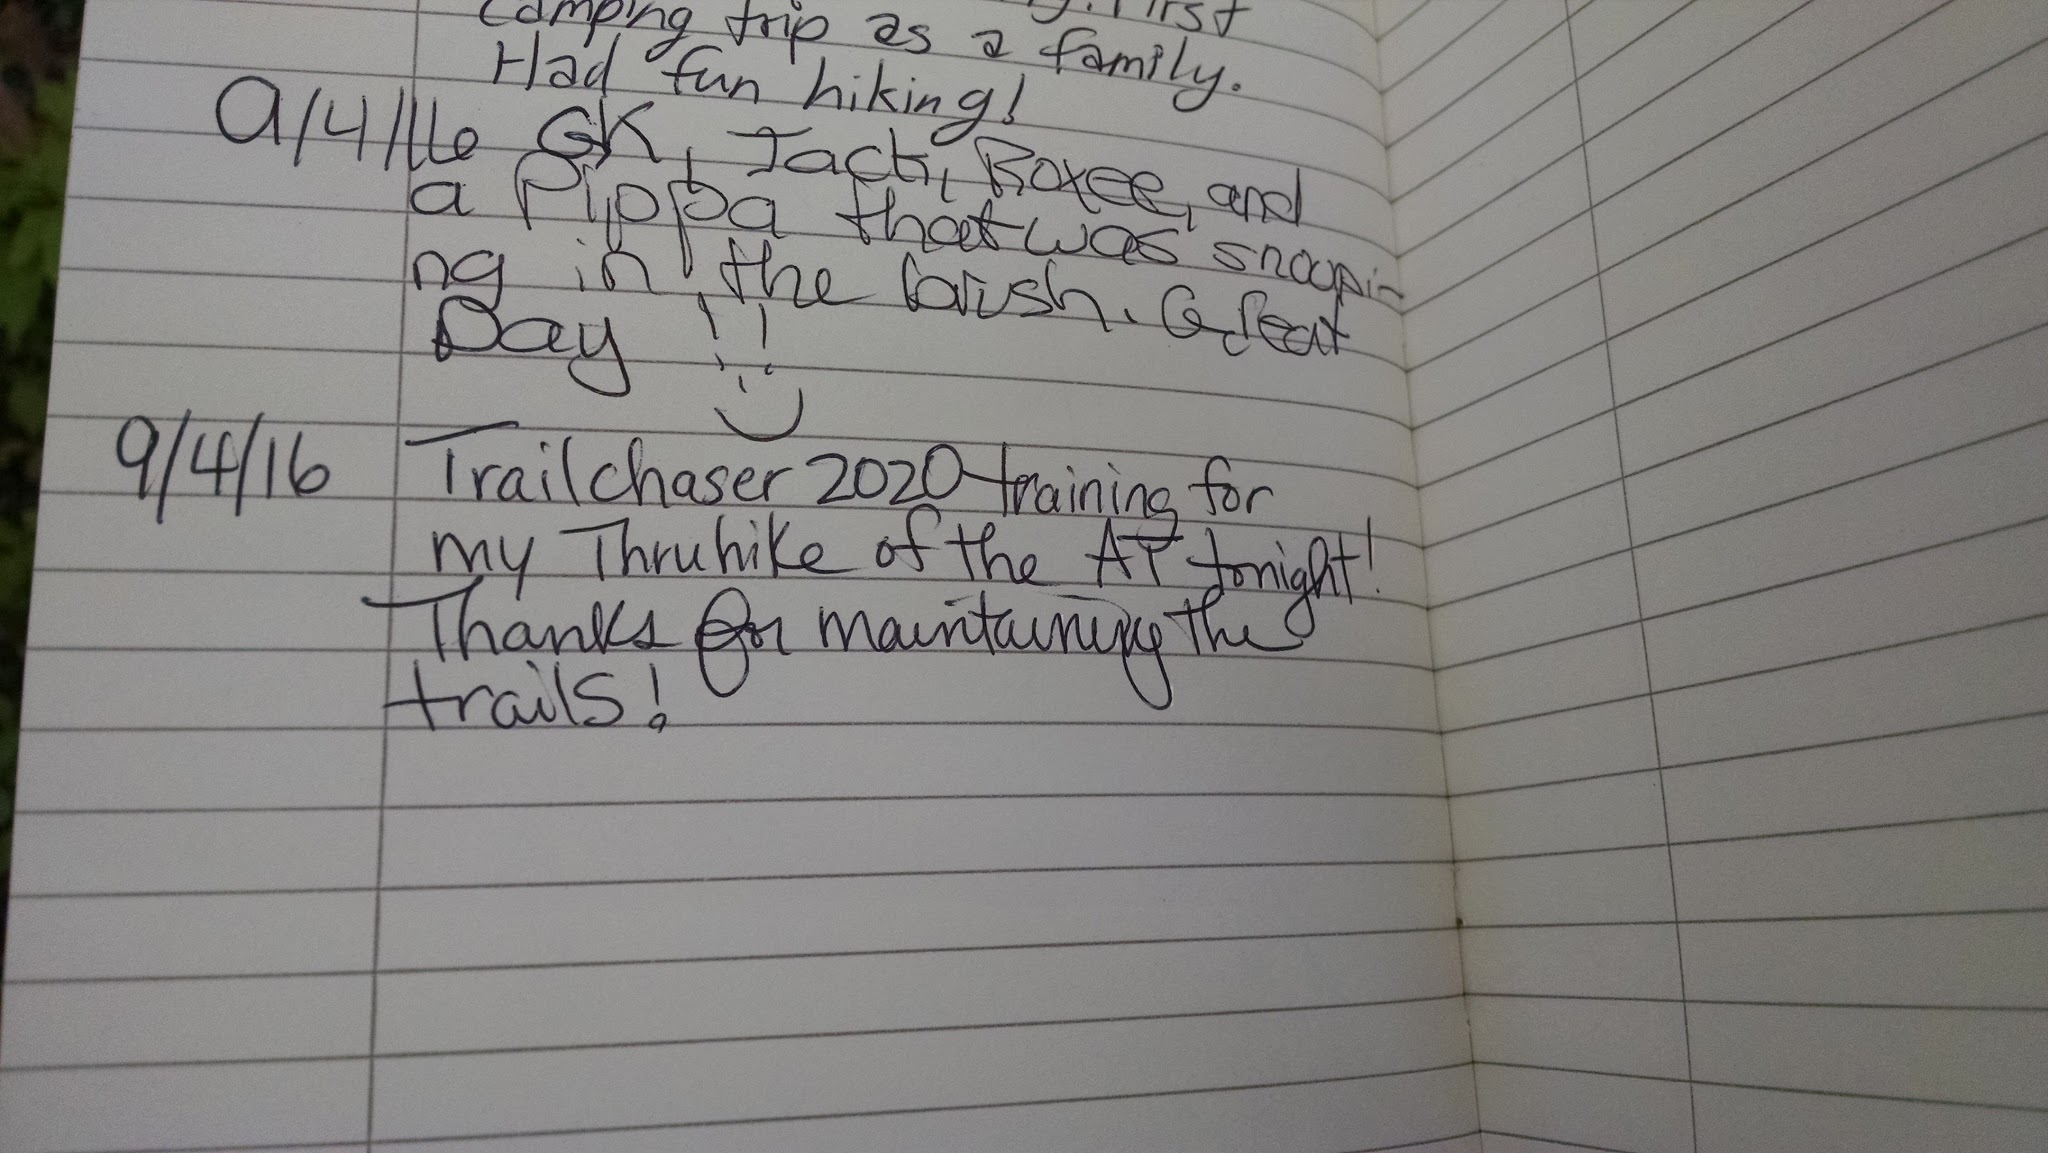 First
camping trip as a family.
Had fun hiking!
9/4/16 GK, Jack, Roxee, and
a Pippa that was snoopi-
ng in the brush. Great
Day !!
:)
9/4/16 Trailchaser 2020-training for
my Thruhike of the AT tonight!
Thanks for maintaining the
trails!